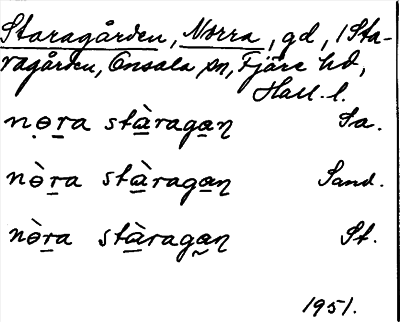 Staragården, Norra, gd, 1 Sta-
ragården, Onsala sn, Fjäre hd,
Hall. l.
nọra stàragaɳ Sa.
nɵ̀ra stàragaɳ Sand.
nɵ̀ra stàragaɳ St.
1951.